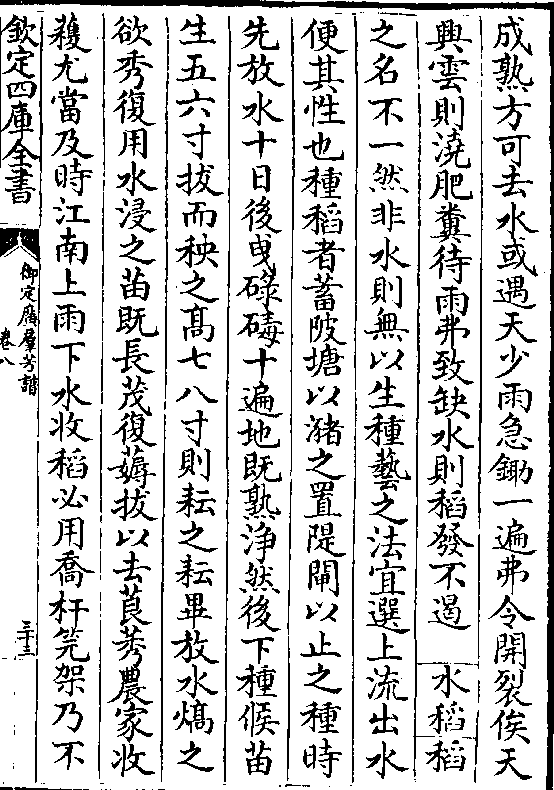 成熟方可去水或遇天少雨急鋤一遍弗令開裂俟天
興雲則澆肥糞待雨弗致缺水則稻發不遏　水稻稻
之名不一然非水則無以生種藝之法宜選上流出水
便其性也種稻者蓄陂塘以瀦之置隄閘以止之種時
先放水十日後曳碌碡十遍地既熟净然後下種候苗
生五六寸拔而秧之髙七八寸則耘之耘畢放水熇之
欲秀復用水浸之苗既長茂復薅拔以去莨莠農家收
穫尤當及時江南上雨下水收稻必用喬杆筦架乃不
欽定四庫全書
御定廣羣芳譜
卷八
三十三